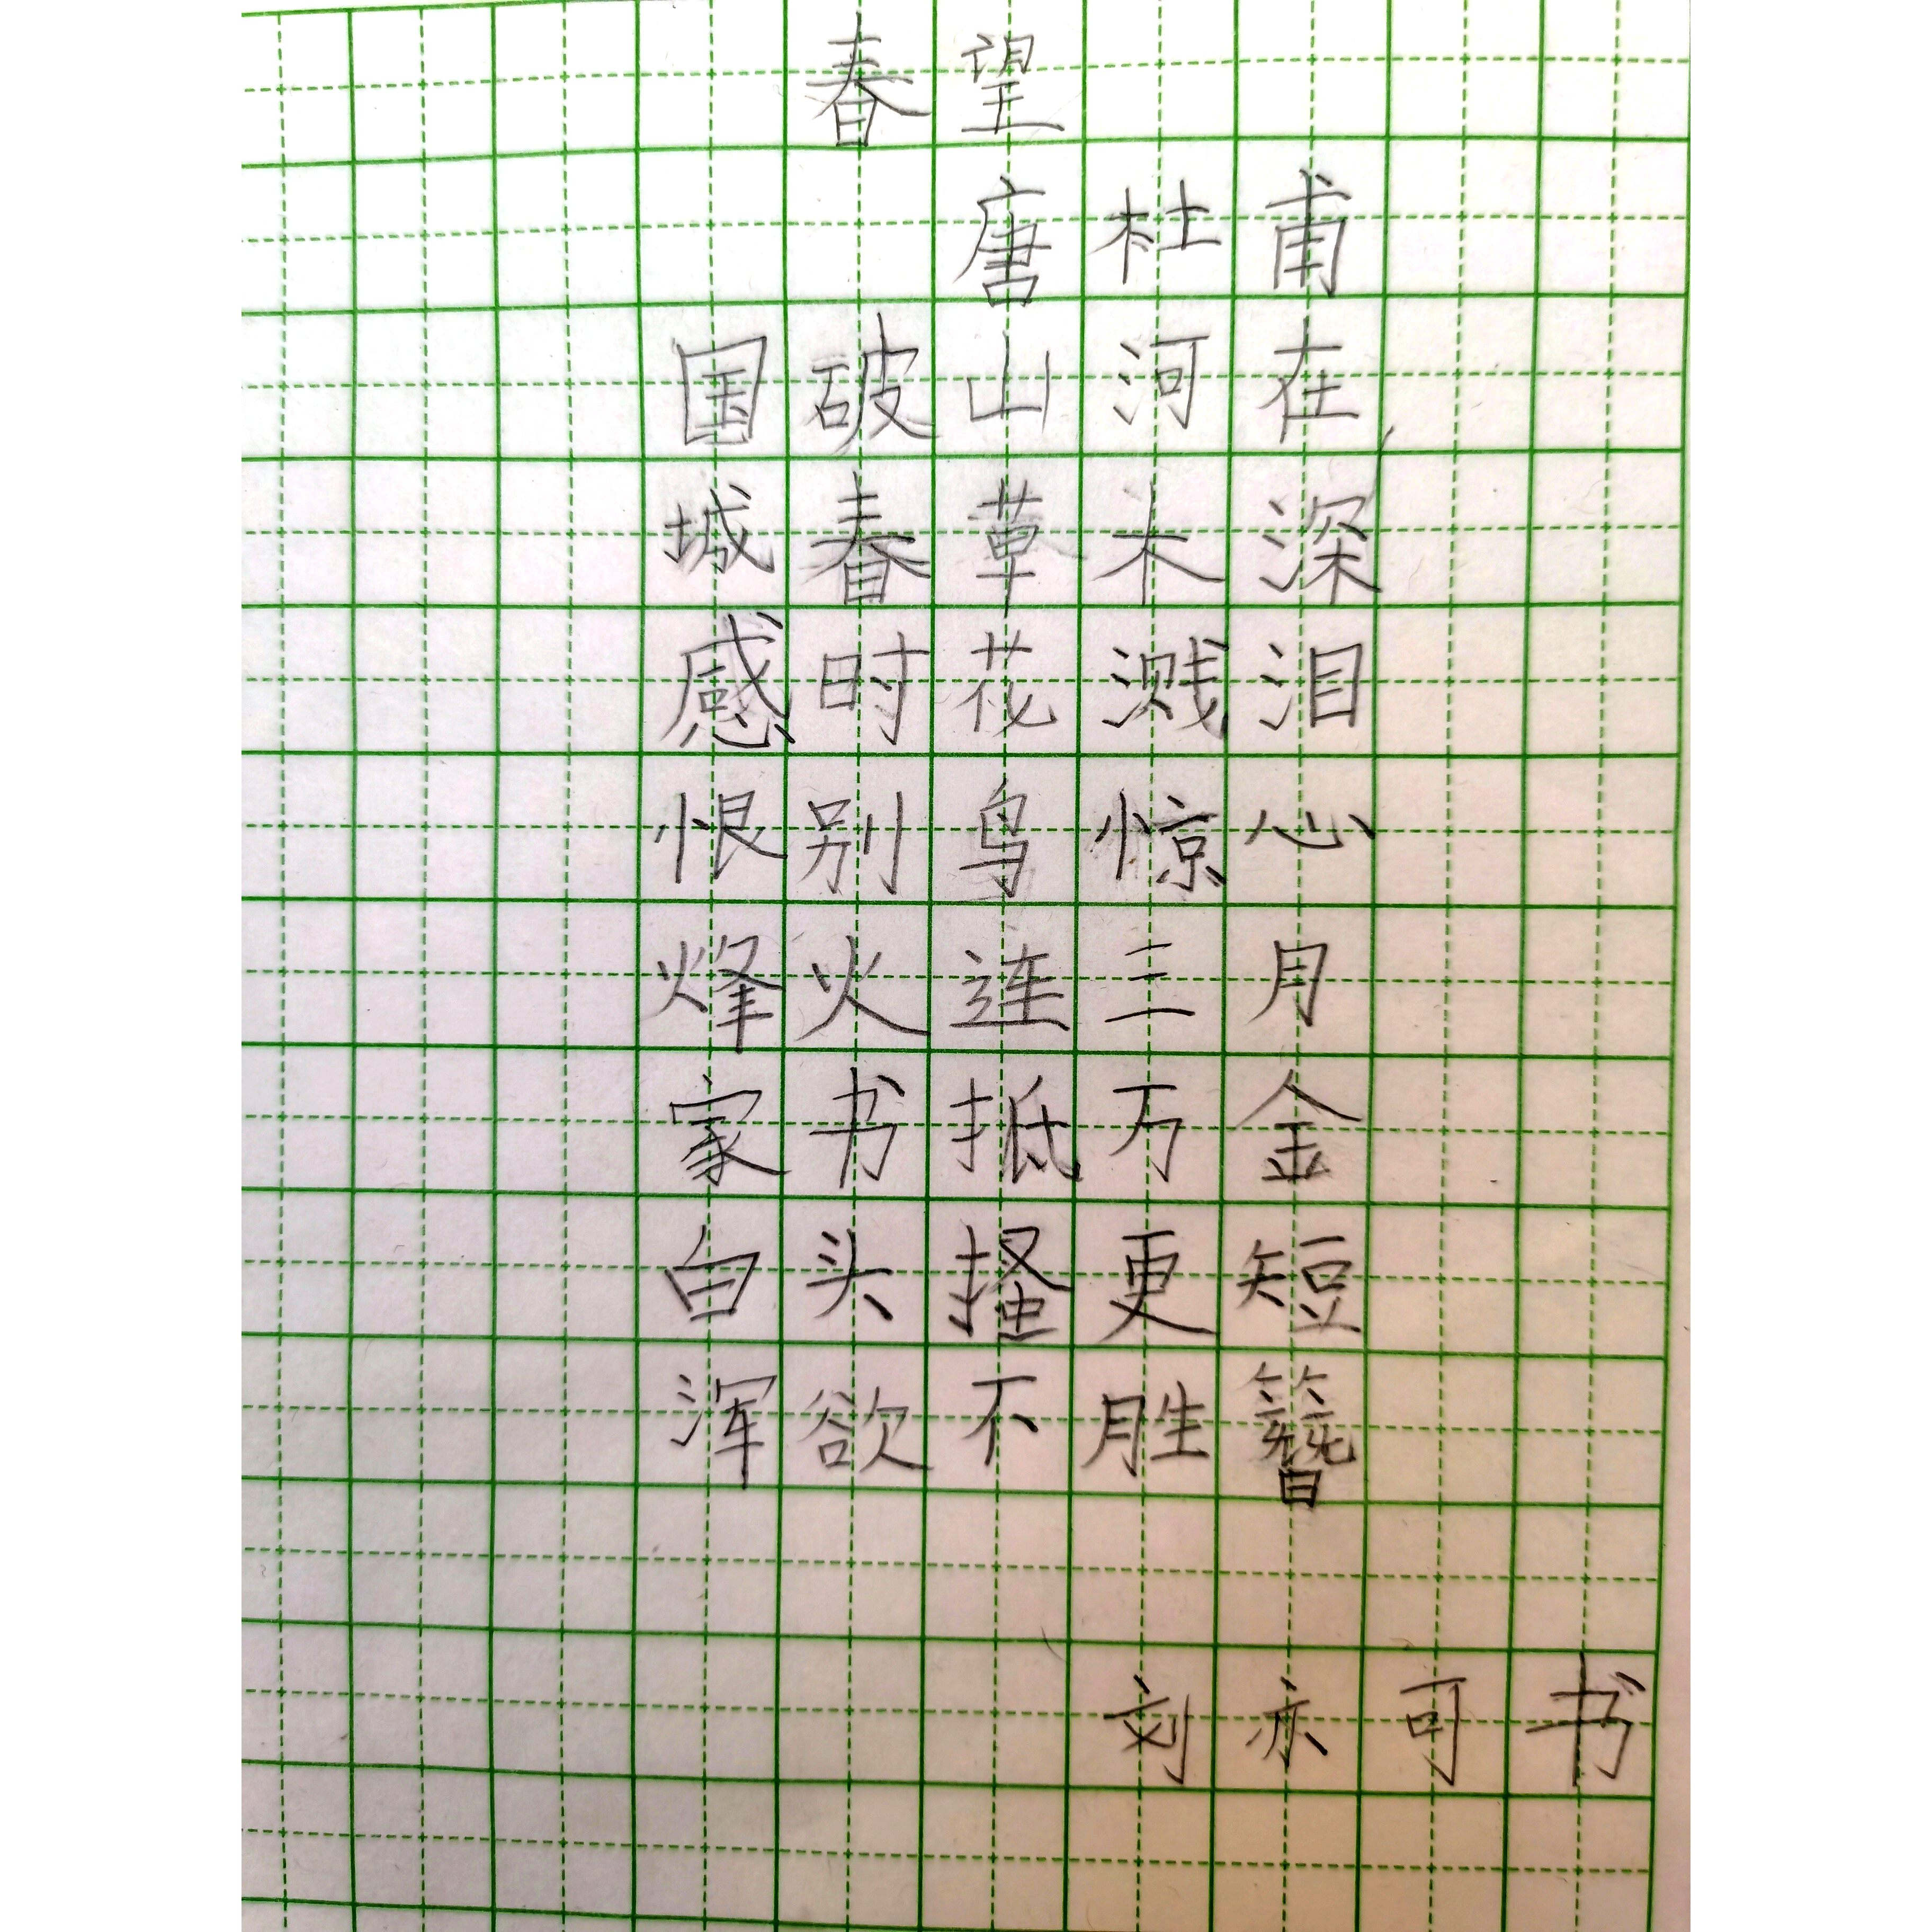 春望
唐杜甫
国破山河在
城春草木深
感时花溅泪
恨别鸟惊心
烽火连三月
家书抵万金
白头搔更短
浑欲不胜簪
刘亦可书